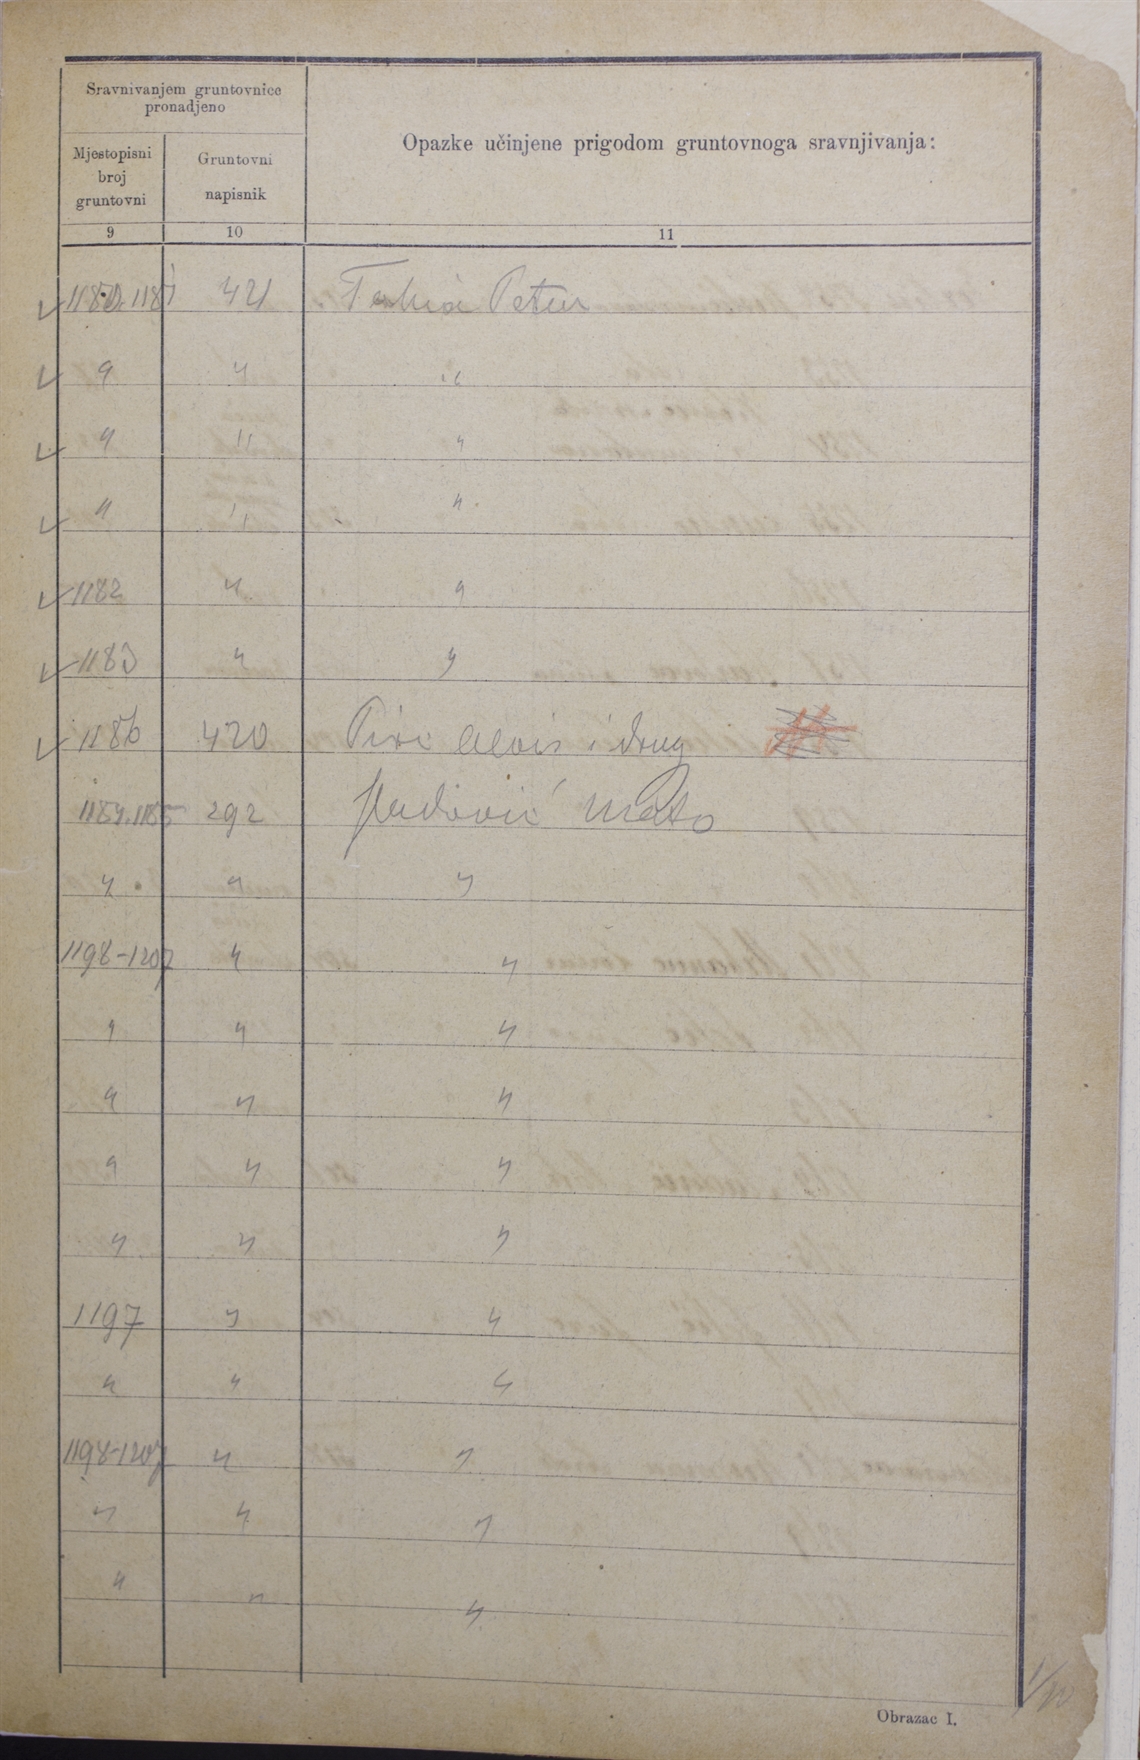 Sravnivanjem gruntovnice
pronadjeno
Opazke učinjene prigodom gruntovnoga sravnjivanja:
Mjestopisni
broj
gruntovni
Gruntovni
napisnik
9 10 11
1180.1181 421 Petar
" " "
" " "
" " "
1182 " "
1183 " "
1186 420 Pirc Alois i drug
1184.1185 292 Mato
" " "
1198-1207 " "
" " "
" " "
" " "
" " "
1197 " "
" " "
1198-1207 " "
" " "
" " "
Obrazac I.